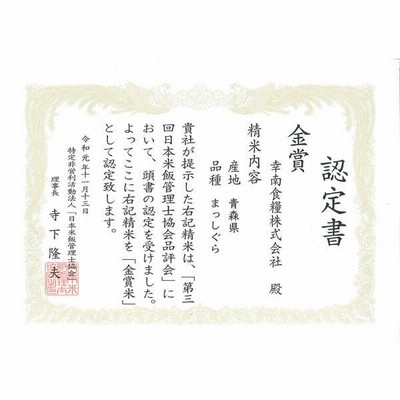 認定書
幸南食糧株式会社 殿
金賞
精米内容
産地 青森県
品種 まっしぐら
貴社が提示した右記精米は、「第三
回日本米飯管理士協会品評会」に
おいて、頭書の認定を受けました。
よってここに右記精米を「金賞米」
として認定致します。
令和元年十一月十三日
特定非営利活動法人 日本米飯管理士協会
理事長 寺下隆夫